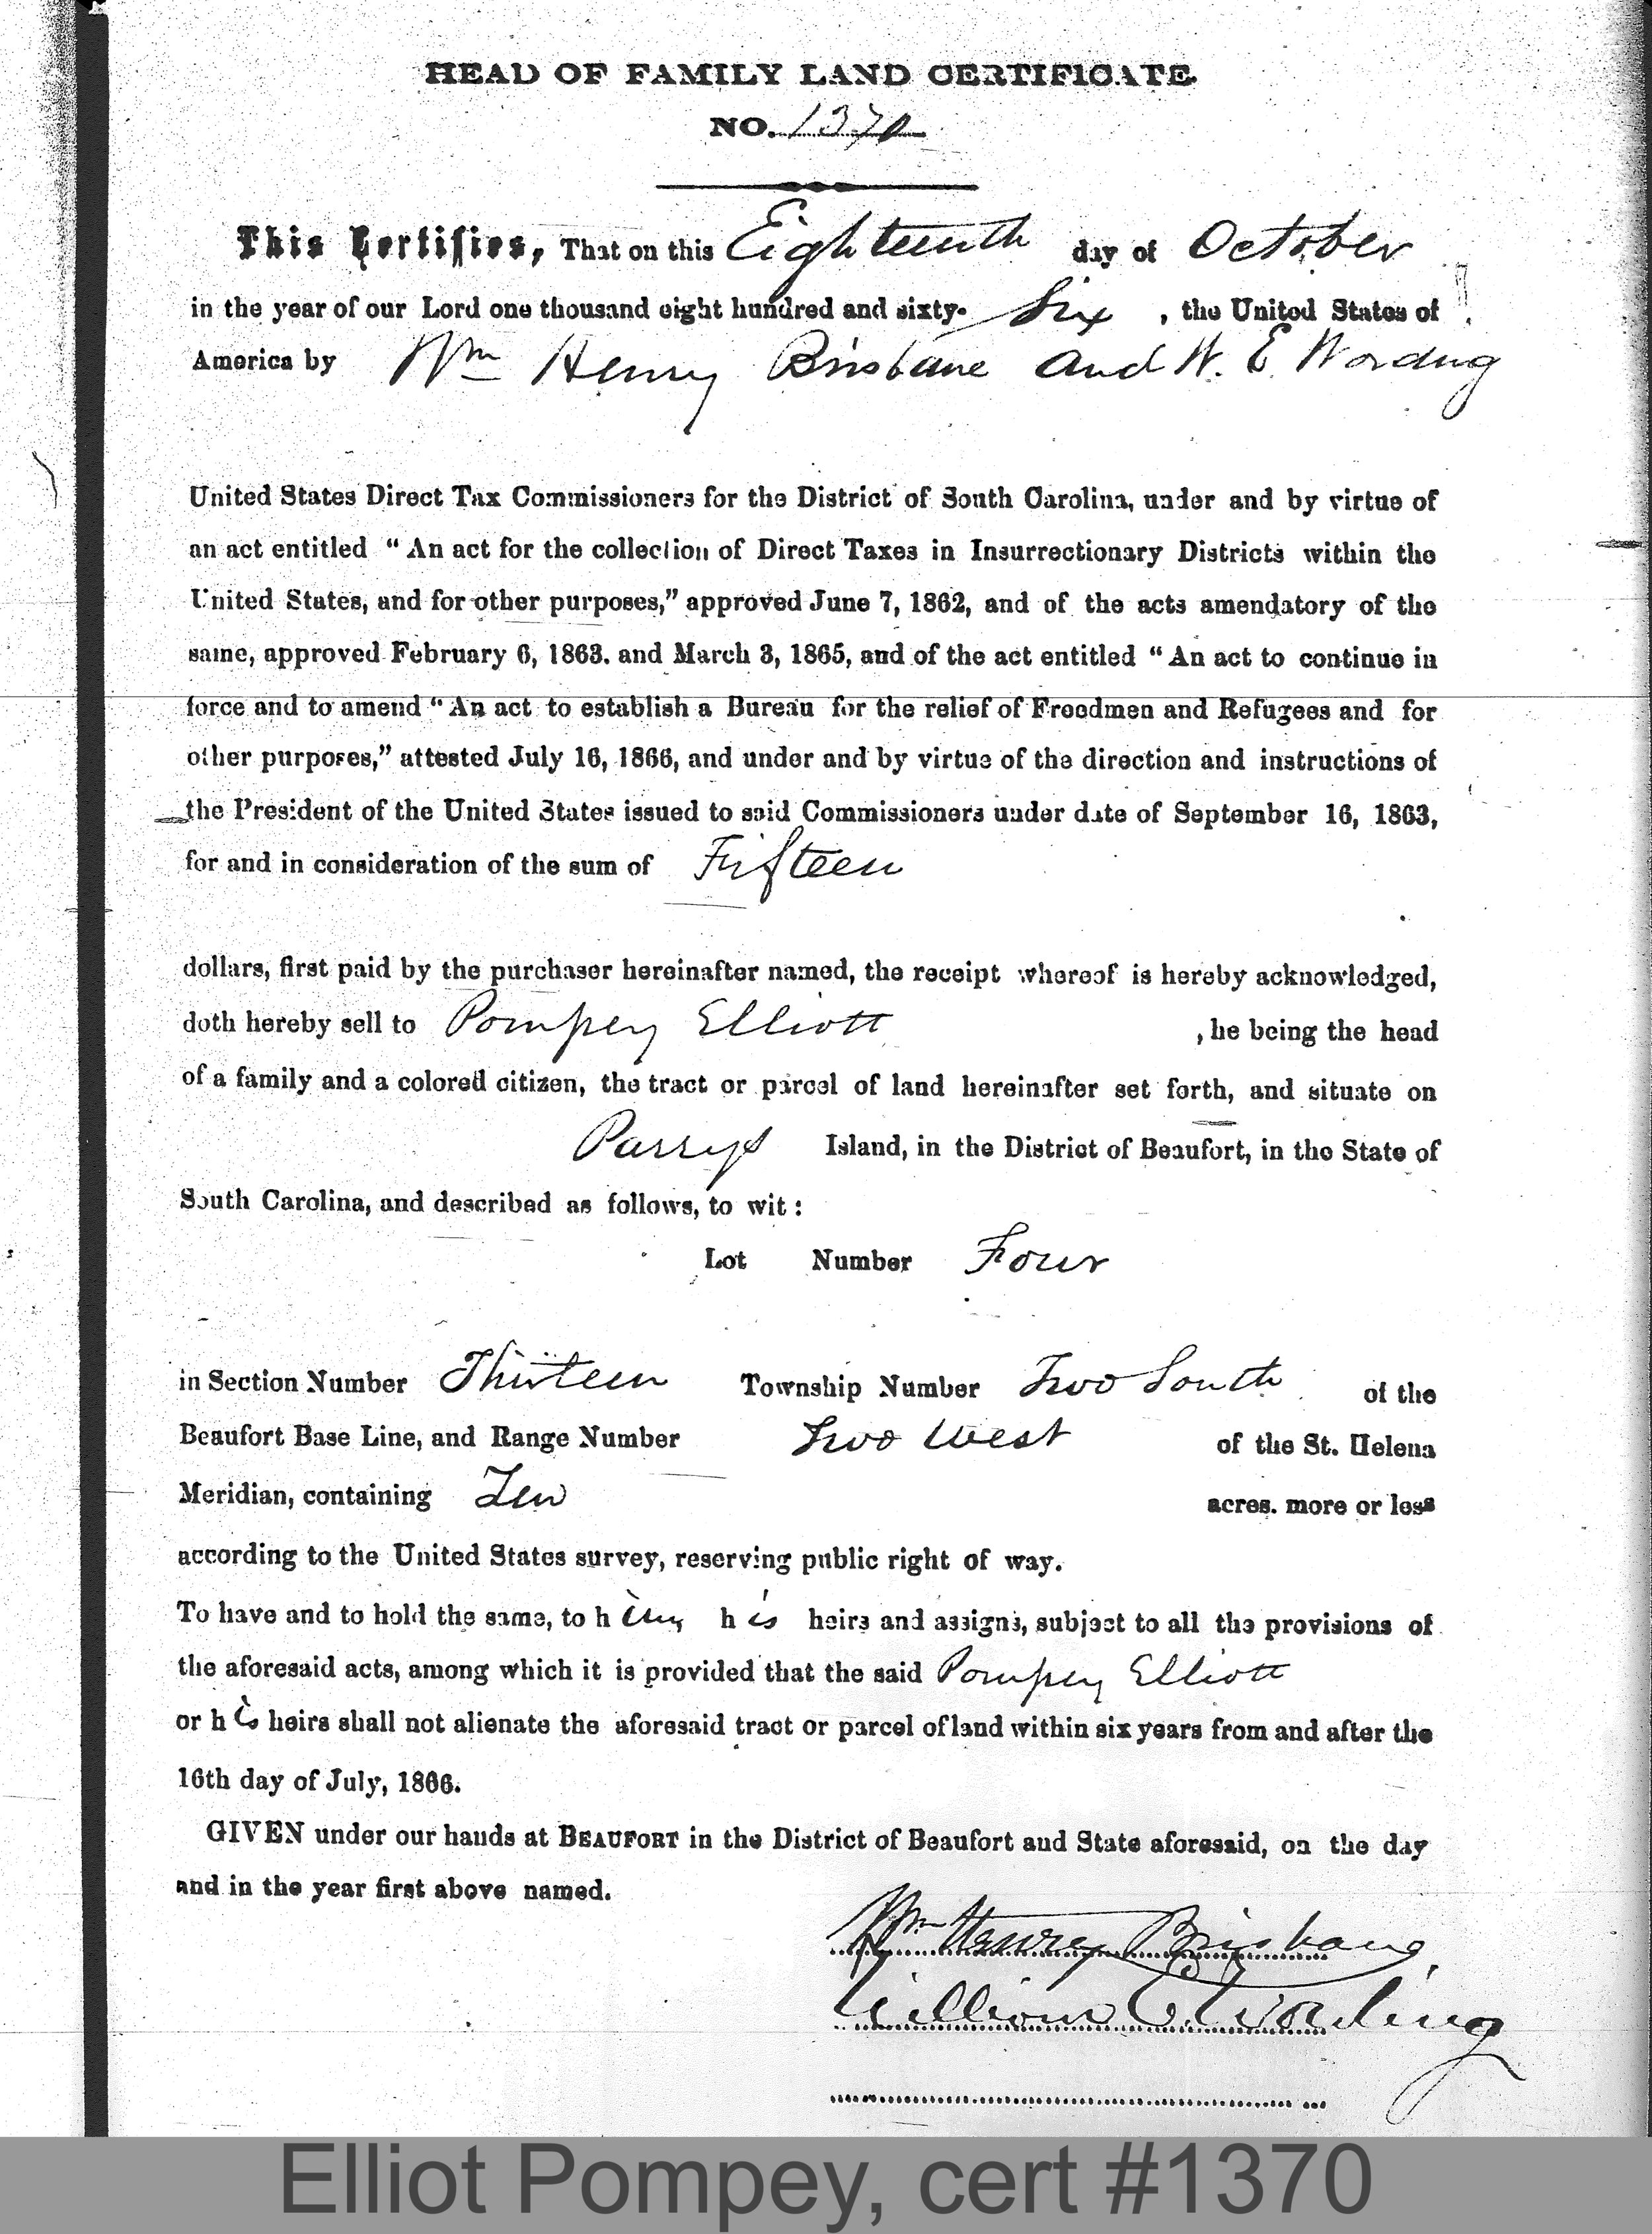 HEAD OF FAMILY LAND CERTIFICATE
NO. 1370
This Certifies, That on this Eighteenth day of October
in the year of our Lord one thousand eight hundred and sixty- Six , the United States of
America by Wm Henry Brisbane and W. E. Wording
United States Direct Tax Commissioners for the District of South Carolina, under and by virtue of
an act entitled “ An act for the collection of Direct Taxes in Insurrectionary Districts within the
United States, and for other purposes,” approved June 7, 1862, and of the acts amendatory of the
same, approved February 6, 1863. and March 3, 1865, and of the act entitled “ An act to continue in
force and to amend “ An act to establish a Bureau for the relief of Freedmen and Refugees and for
other purposes,” attested July 16, 1866, and under and by virtue of the direction and instructions of
the President of the United States issued to said Commissioners under date of September 16, 1863,
for and in consideration of the sum of Fifteen
dollars, first paid by the purchaser hereinafter named, the receipt whereof is hereby acknowledged,
doth hereby sell to Pompey Elliott , he being the head
of a family and a colored citizen, the tract or parcel of land hereinafter set forth, and situate on
Parrys Island, in the District of Beaufort, in the State of
South Carolina, and described as follows, to wit :
Lot Number Four
in Section Number Thirteen Township Number Two South of the
Beaufort Base Line, and Range Number Two West of the St. Helena
Meridian, containing Ten acres. more or less
according to the United States survey, reserving public right of way.
To have and to hold the same, to him, his heirs and assigns, subject to all the provisions of
the aforesaid acts, among which it is provided that the said Pompey Elliott
or his heirs shall not alienate the aforesaid tract or parcel of land within six years from and after the
16th day of July, 1866.
GIVEN under our hands at BEAUFORT in the District of Beaufort and State aforesaid, on the day
and in the year first above named.
Wm Henry Brisbane,
William E. Wording
Elliot Pompey, cert #1370